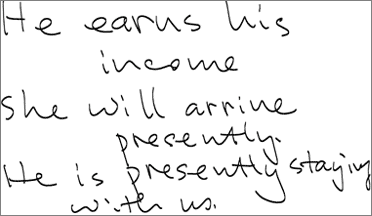 He earns his
income
She will arrive
presently.
He is presently staying
with us.